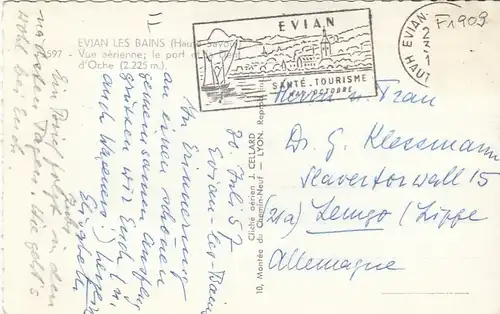 EVIAN LES BAINS (Haute-Savoie)
Vue aérienne; le port
d'Oche (2.225 m.).
EVIAN
SANTÉ.TOURISME
MAI-OCTOBRE
EVIAN
HAUTE
F1909
Cliché aérien T. CELLARD
10, Montée du Chemin-Neuf — LYON. Reproduction
Evian-les-Bains
20. Juli 57
Zur Erinnerung
an einen schönen
gemeinsamen Ausflug
grüßen wir Euch (u.
auch Wageners!) herzlich
Ein Brief folgt in den
nächsten Tagen. Wie geht's
wohl bei Euch
Herrn u. Frau
Dr. G. Klessmann
Slavertorwall 15
(21a) Lemgo (Lippe
Allemagne